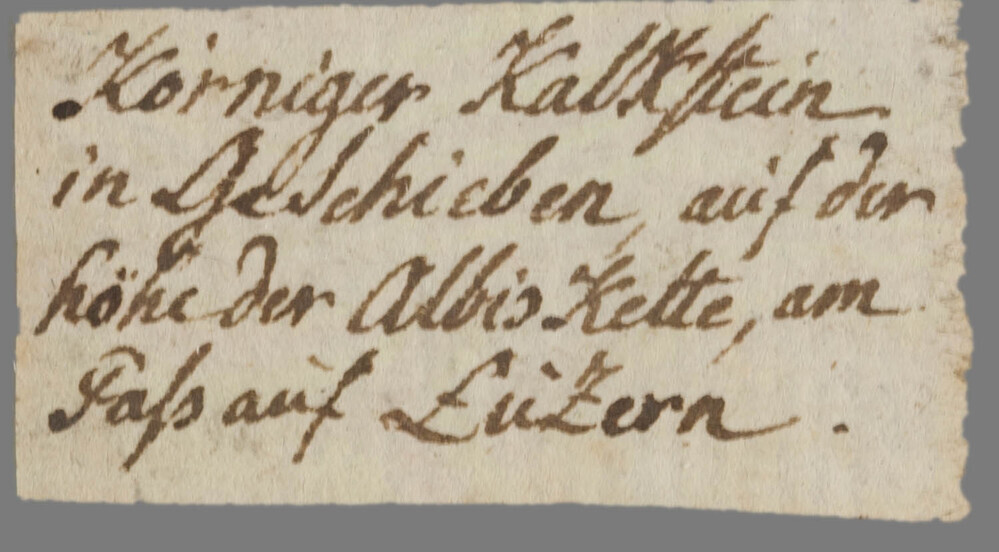 Körniger Kalkstein
in Geschieben, auf der
höhe der Albis Kette, am
Paſs auf Luzern.